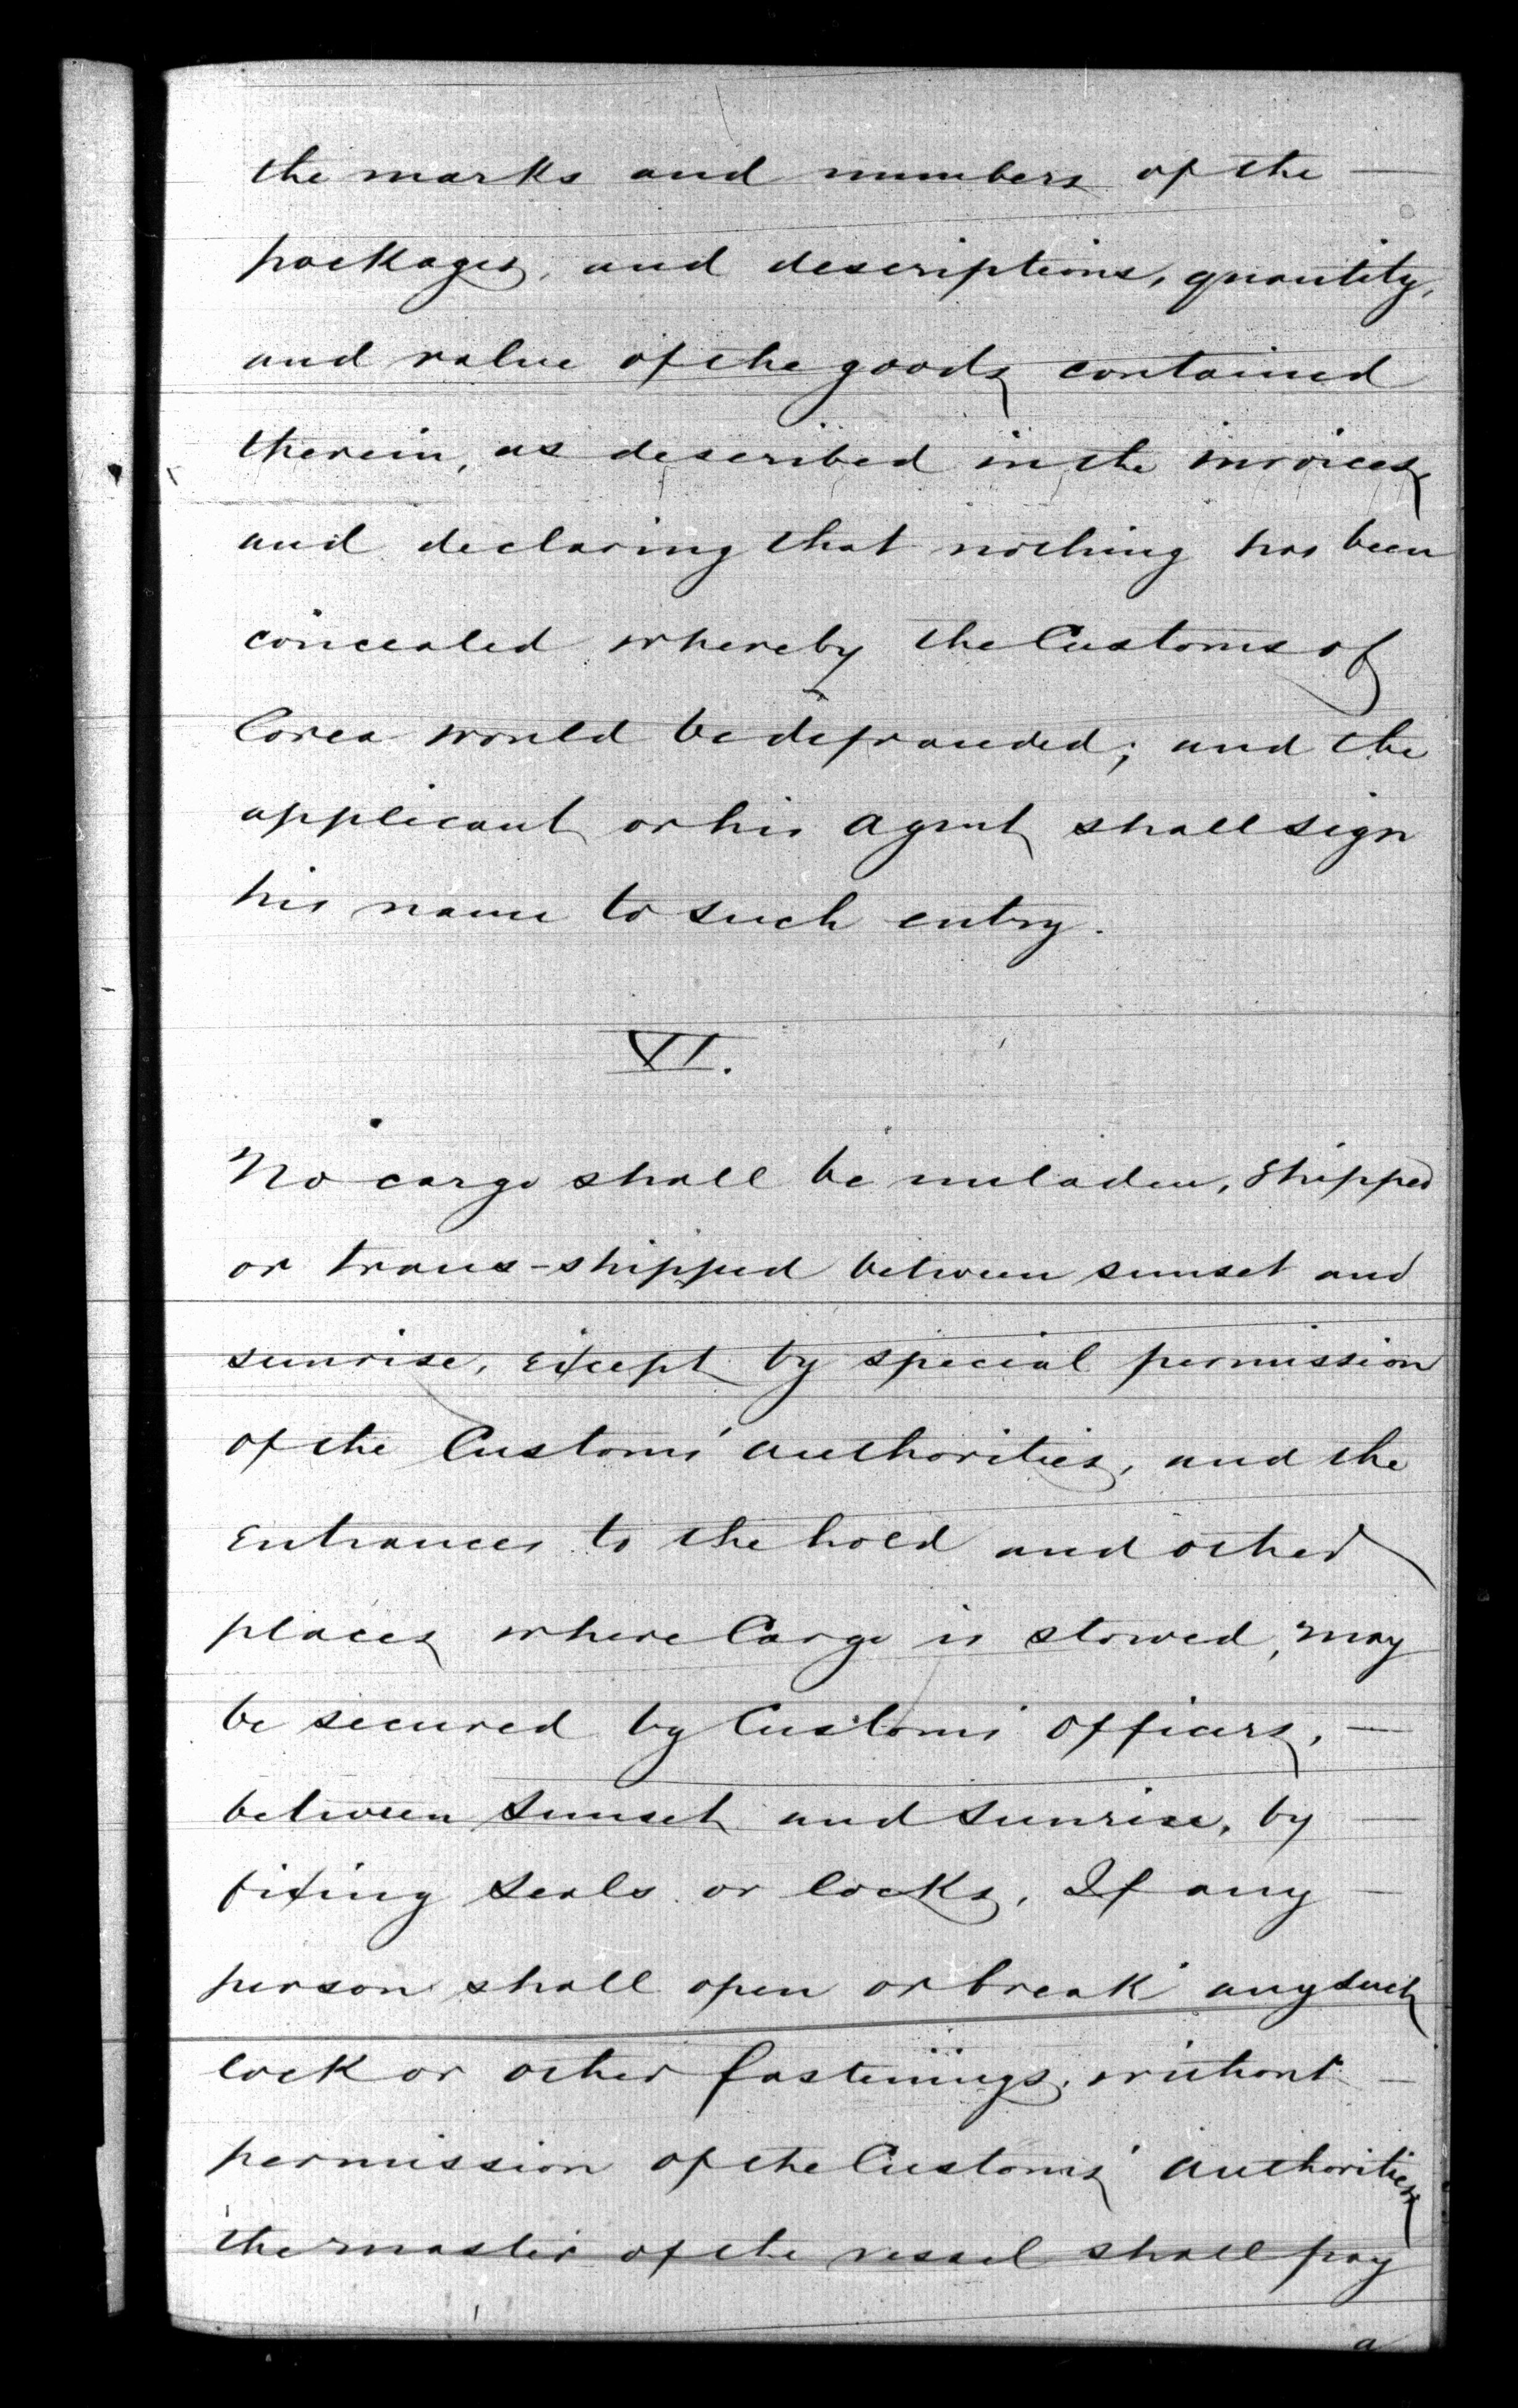 the marks and numbers of the —
packages, and descriptions, quantity,
and value of the goods contained
therein, as described in the invoices
and declaring that nothing has been
concealed whereby the Customs of
Corea would be defrauded; and the
applicant or his agent shall sign
his name to such entry.
VI.
No cargo shall be unladen, shipped
or trans-shipped between sunset and
sunrise, except by special permission
of the Customs' authorities, and the
entrances to the hold and other
places where Cargo is stowed, may
be secured by Customs officers, —
between sunset and sunrise, by —
fixing seals or locks, If any —
person shall open or break any such
lock or other fastenings, without —
permission of the Customs' authorities
the master of the vessel shall pay
a